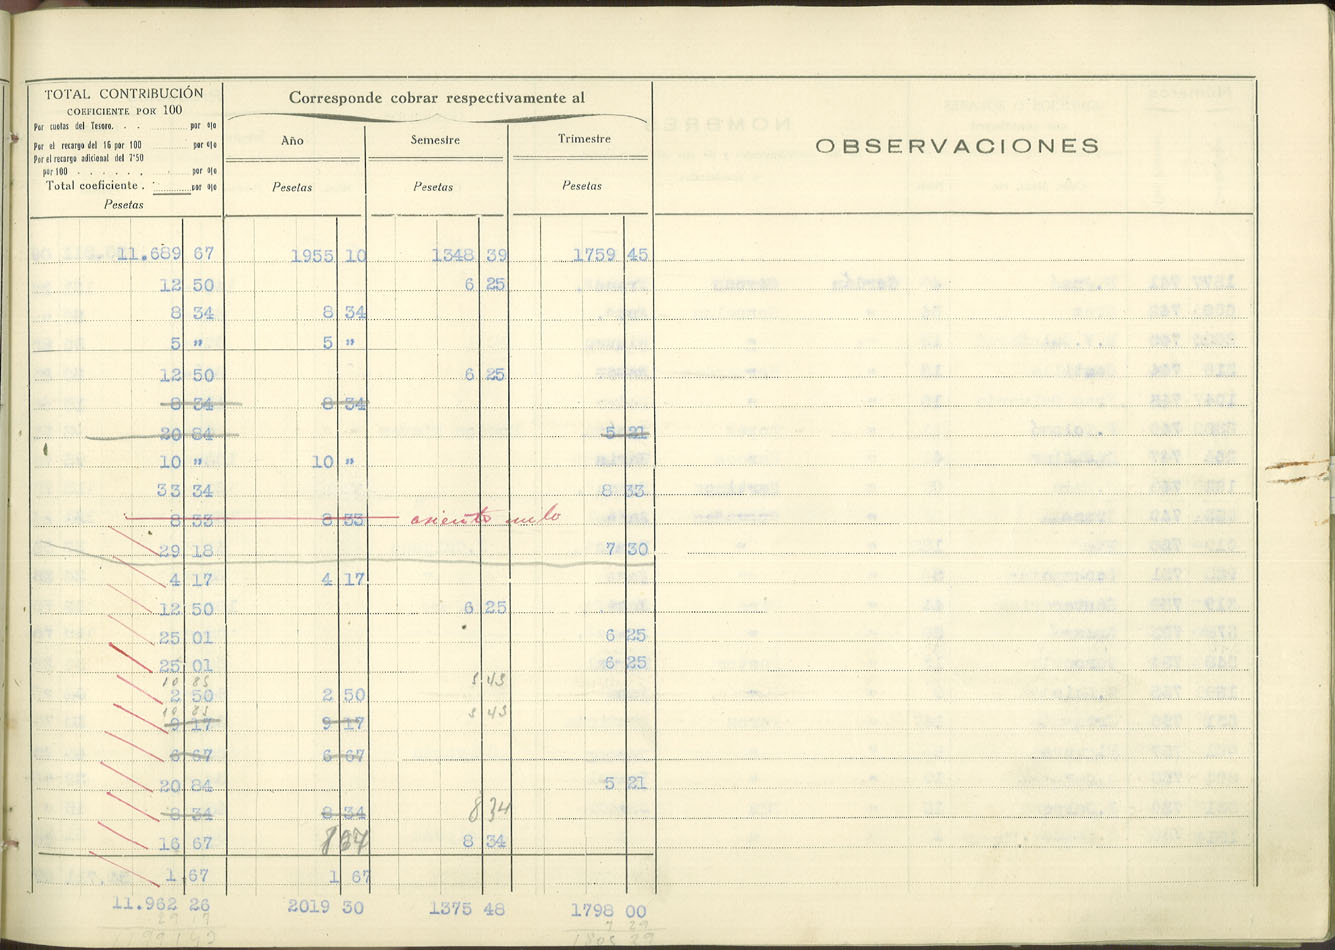 TOTAL CONTRIBUCIÓN
COEFICIENTE POR 100
Por cuotas del Tesoro. . . ........ por 0|0
Por el recargo del 16 por 100 ........ por 0|0
Por el recargo adicional del 7'50
por 100 . . . . . . ........ por 0|0
Total coeficiente . ........ por 0|0
Pesetas
Corresponde cobrar respectivamente al
Año Semestre Trimestre
Pesetas Pesetas Pesetas
OBSERVACIONES
11.689 67 1955 10 1348 39 1759 45
12 50 6 25
8 34 8 34
5 " 5 "
12 50 6 25
8 34 8 34
20 84 5 21
10 " 10 "
33 34 8 33
8 33 8 33 asiento nulo
29 18 7 30
4 17 4 17
12 50 6 25
25 01 6 25
25 01 6 25
10 85 5 43
2 50 2 50
10 85 5 43
9 17 9 17
6 67 6 67
20 84 5 21
8 34 8 34 8 34
16 67 8 37 8 34
1 67 1 67
11.962 26 2019 30 1375 48 1798 00
29 17 7 29
11991 43 1805 29